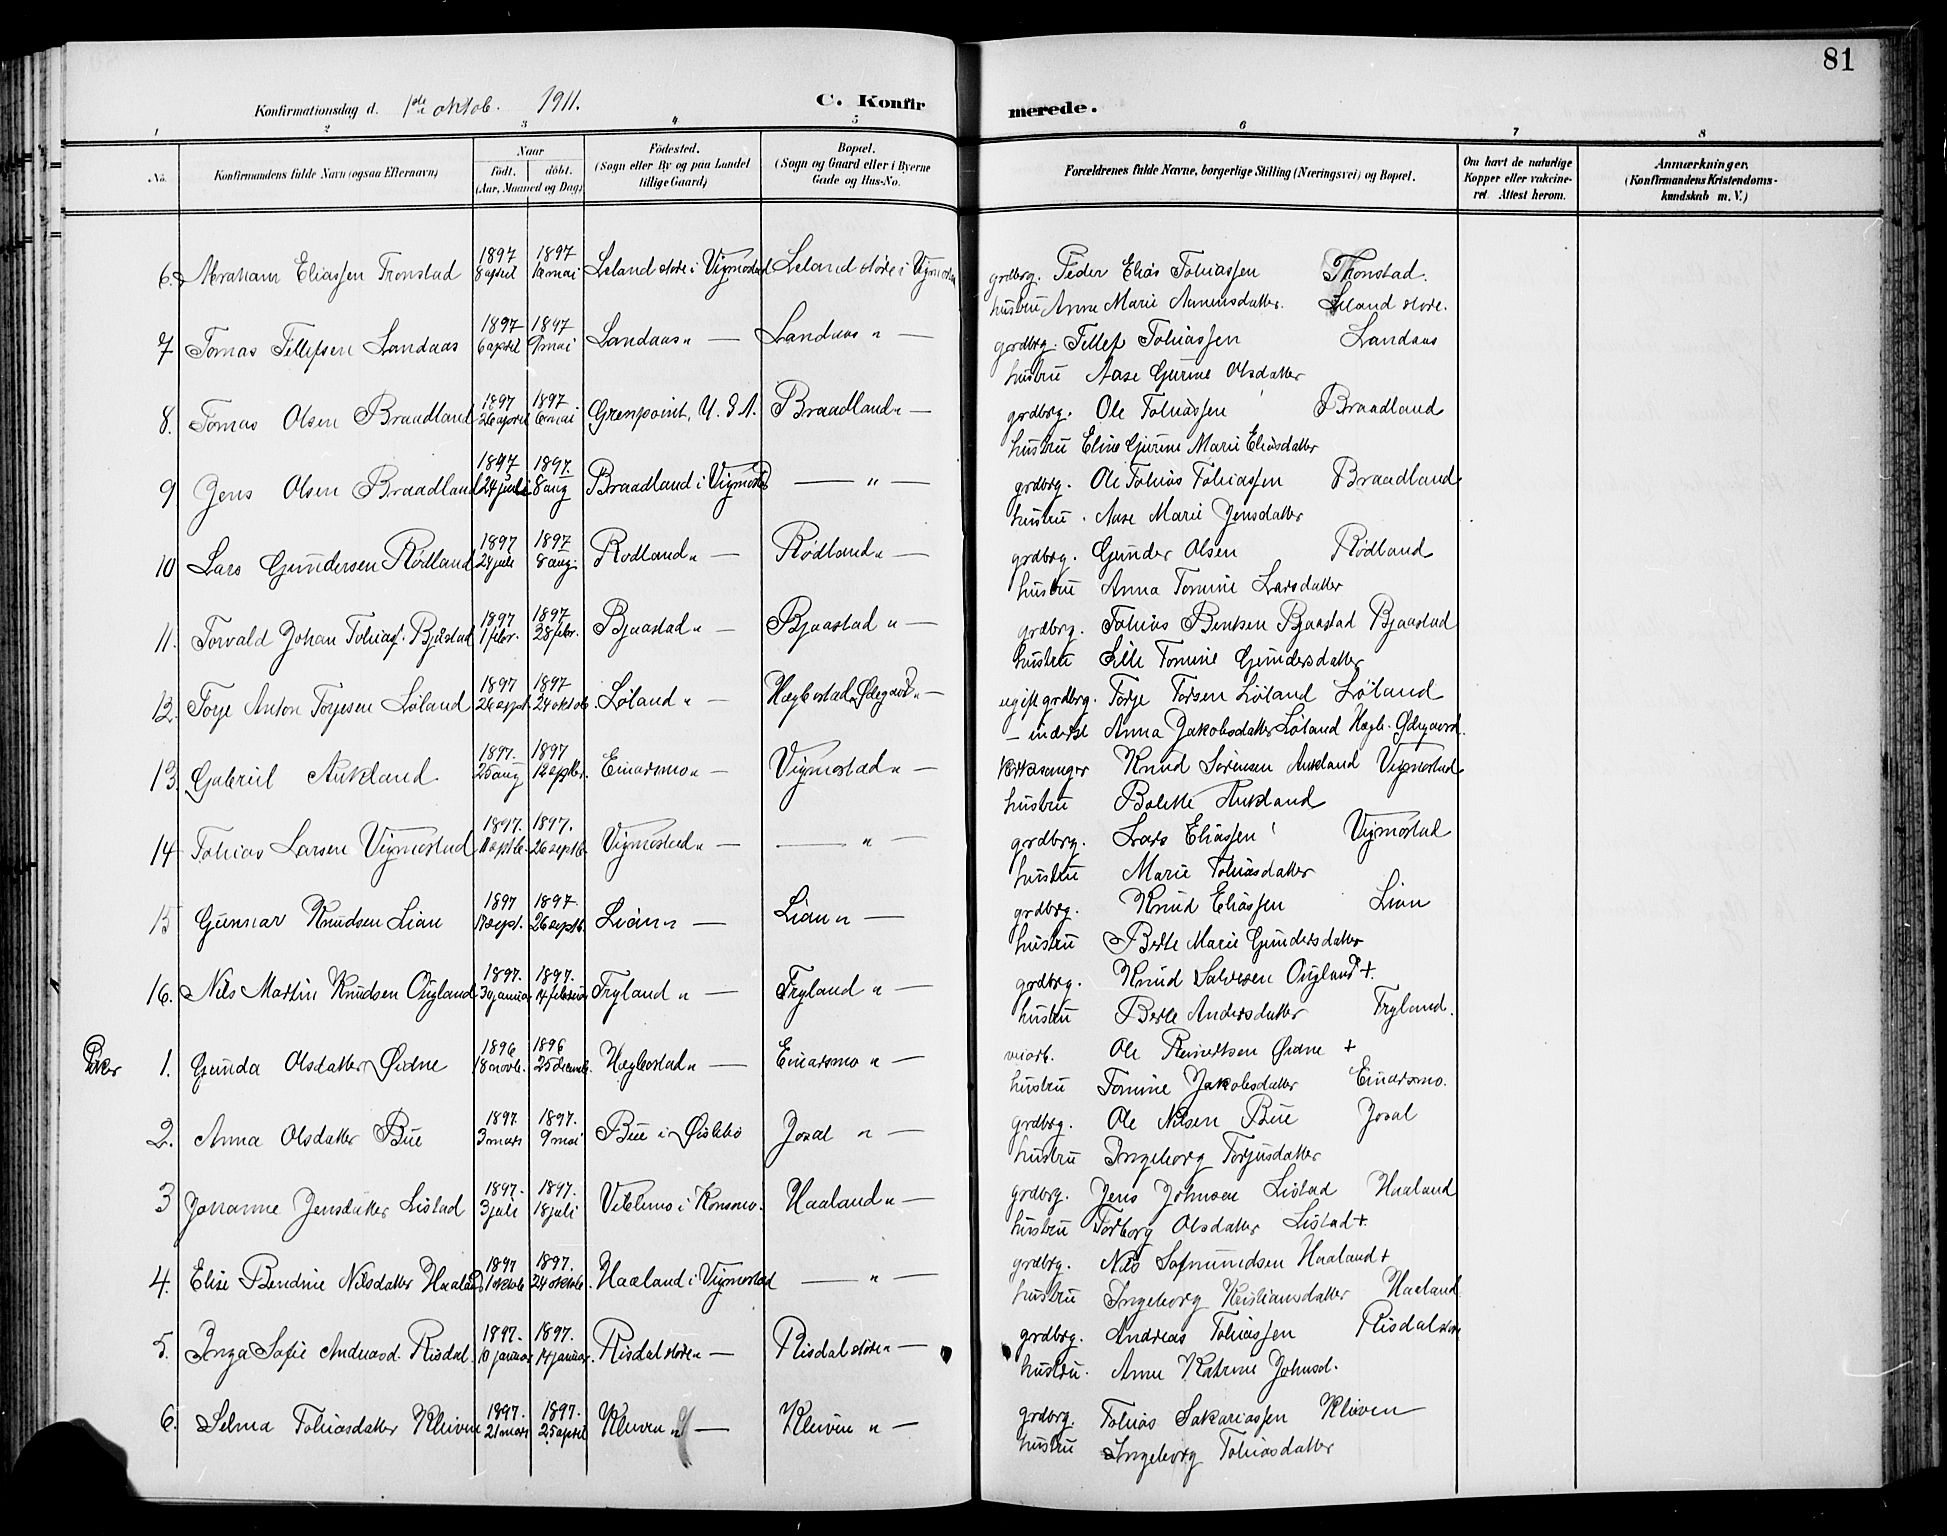 81
Konfirmationsdag d. 1ste oktob. 1911. C. Konfirmerede.
1 2 3 4 5 6 7 8
No. Konfirmandens fulde Navn (ogsaa Efternavn) Naar født. døbt. (Aar, Maaned og Dag) Fødested. (Sogn eller By og paa Landet tillige Gaard) Bopæl. (Sogn og Gaard eller i Byerne Gade og Hus-No. Forældrenes fulde Navne, borgerlige Stilling (Næringsvei) og Bopæl. Om havt de naturlige Kopper eller vakcineret. Attest herom. Anmærkninger. (Konfirmandens Kristendomskundskab m. V.)
6. Abraham Eliassen Tronstad 1897 8 april 1897 mai Leland store i Vigmostad Leland store i Vigmostad grdbrg. Peder Elias Tobiassen Thonstad.
hustru Anne Marie Leland store.
7 Tomas Tellefsen Landaas 1897 6 april 1897 9 mai Landaas " — Landaas " — gardbrg. Tellef Tobiassen Landaas
hustru Aase Gurine Olsdatter
8. Tomas Olsen Braadland 1897 26 april 1897 mai Grenpoint, U.S.A. Braadland " — grdbrg. Ole Tobiassen Braadland
hustru Eline Gurine Marie Eliasdatter
9 Jens Olsen Braadland 1897 24 juli 1897. 8 aug Braadland i Vigmostad — " — grdbrg. Ole Tobias Tobiassen Braadland
hustru. Aase Marie Jensdatter
10 Lars Gundersen Rødland 1897 24 juli 1897 8 aug. Rødland " — Rødland " — grdbrg. Gunder Olsen Rødland
hustru Anna Tomine Larsdatter
11. Torvald Johan Tobiass. Bjåstad 1897 1 febr. 1897 28 febr. Bjaastad " — Bjaastad " — grdbrg. Tobias Bentsen Bjaastad Bjaastad
hustru Lille Tomine Gundersdatter
12. Torje Anton Torjesen Løland 1897 26 sept. 1897 24 oktob. Løland " — Hægbostad, Ødegaard " — ugift grdbrg. Torje Torsen Løland Løland
— inderst Anna Jakobsdatter Løland Hægb. Ødegaard.
13 Gabriel Aukland 1897. 25 aug 1897 12 septbr. Einarsmo " — Vigmostad " — Kirkesanger Knud Sørensen Aukland Vigmostad
hustru Bolette Aukland
14 Tobias Larsen Vigmostad 1897. septb. 1897. 26 septb. Vigmostad " — — " — grdbrg. Lars Eliassen Vigmostad
hustru Marie Tobiasdatter
15 Gunnar Knudsen Lian 1897 sept. 1897. 26 septb. Lian " — Lian " — grdbrg. Knud Eliassen Lian
hustru Berte Marie Gundersdatter
16. Nils Martin Knudsen Øugland 1897. 30 januar 1897. 14 februar Fryland " — Fryland " — grdbrg. Knud Salvesen Øugland +.
hustru Berte Andersdatter Fryland.
Piker 1. Gunda Olsdatter Øidne 1896 18 novb. 1896 25 decemb. Hægbostad " — Einarsmo " — veiarb. Ole Reinertsen Øidne +
hustru Tomine Jakobsdatter Einarsmo.
2. Anna Olsdatter Bue 1897. 3 mars 1897. 9 mai Bue i Øislebø Josal " — grdbrg. Ole Nilsen Bue Josal
hustru Ingeborg Torjusdatter
3 Johanne Jensdatter Listad 1897. 3 juli 1897. 18 juli i Konsmo. Haaland " — grdbrg. Jens Johnsen Listad Haaland
hustru Torborg Olsdatter Listad +.
4. Elise Bendine Nilsdatter Haaland 1897 1 oktob 1897. 24 oktob. Haaland i Vigmostad — " — grdbrg. Nils Sofmundsen Haaland +
hustru Ingeborg Kristiansdatter Haaland
5. Inga Sofie Andreasd. Risdal 1897. 10 januar 1897. 14 januar. Risdal store " — Risdal store " — grdbrg. Andreas Tobiassen Risdal store
hustru. Anne Katrine Johnsd.
6. Selma Tobiasdatter Kleiven 1897. 21 mars 1897. 25 april Kleiven " — Kleiven " — grdbrg. Tobias Sakariassen Kleiven
hustru Ingeborg Tobiasdatter